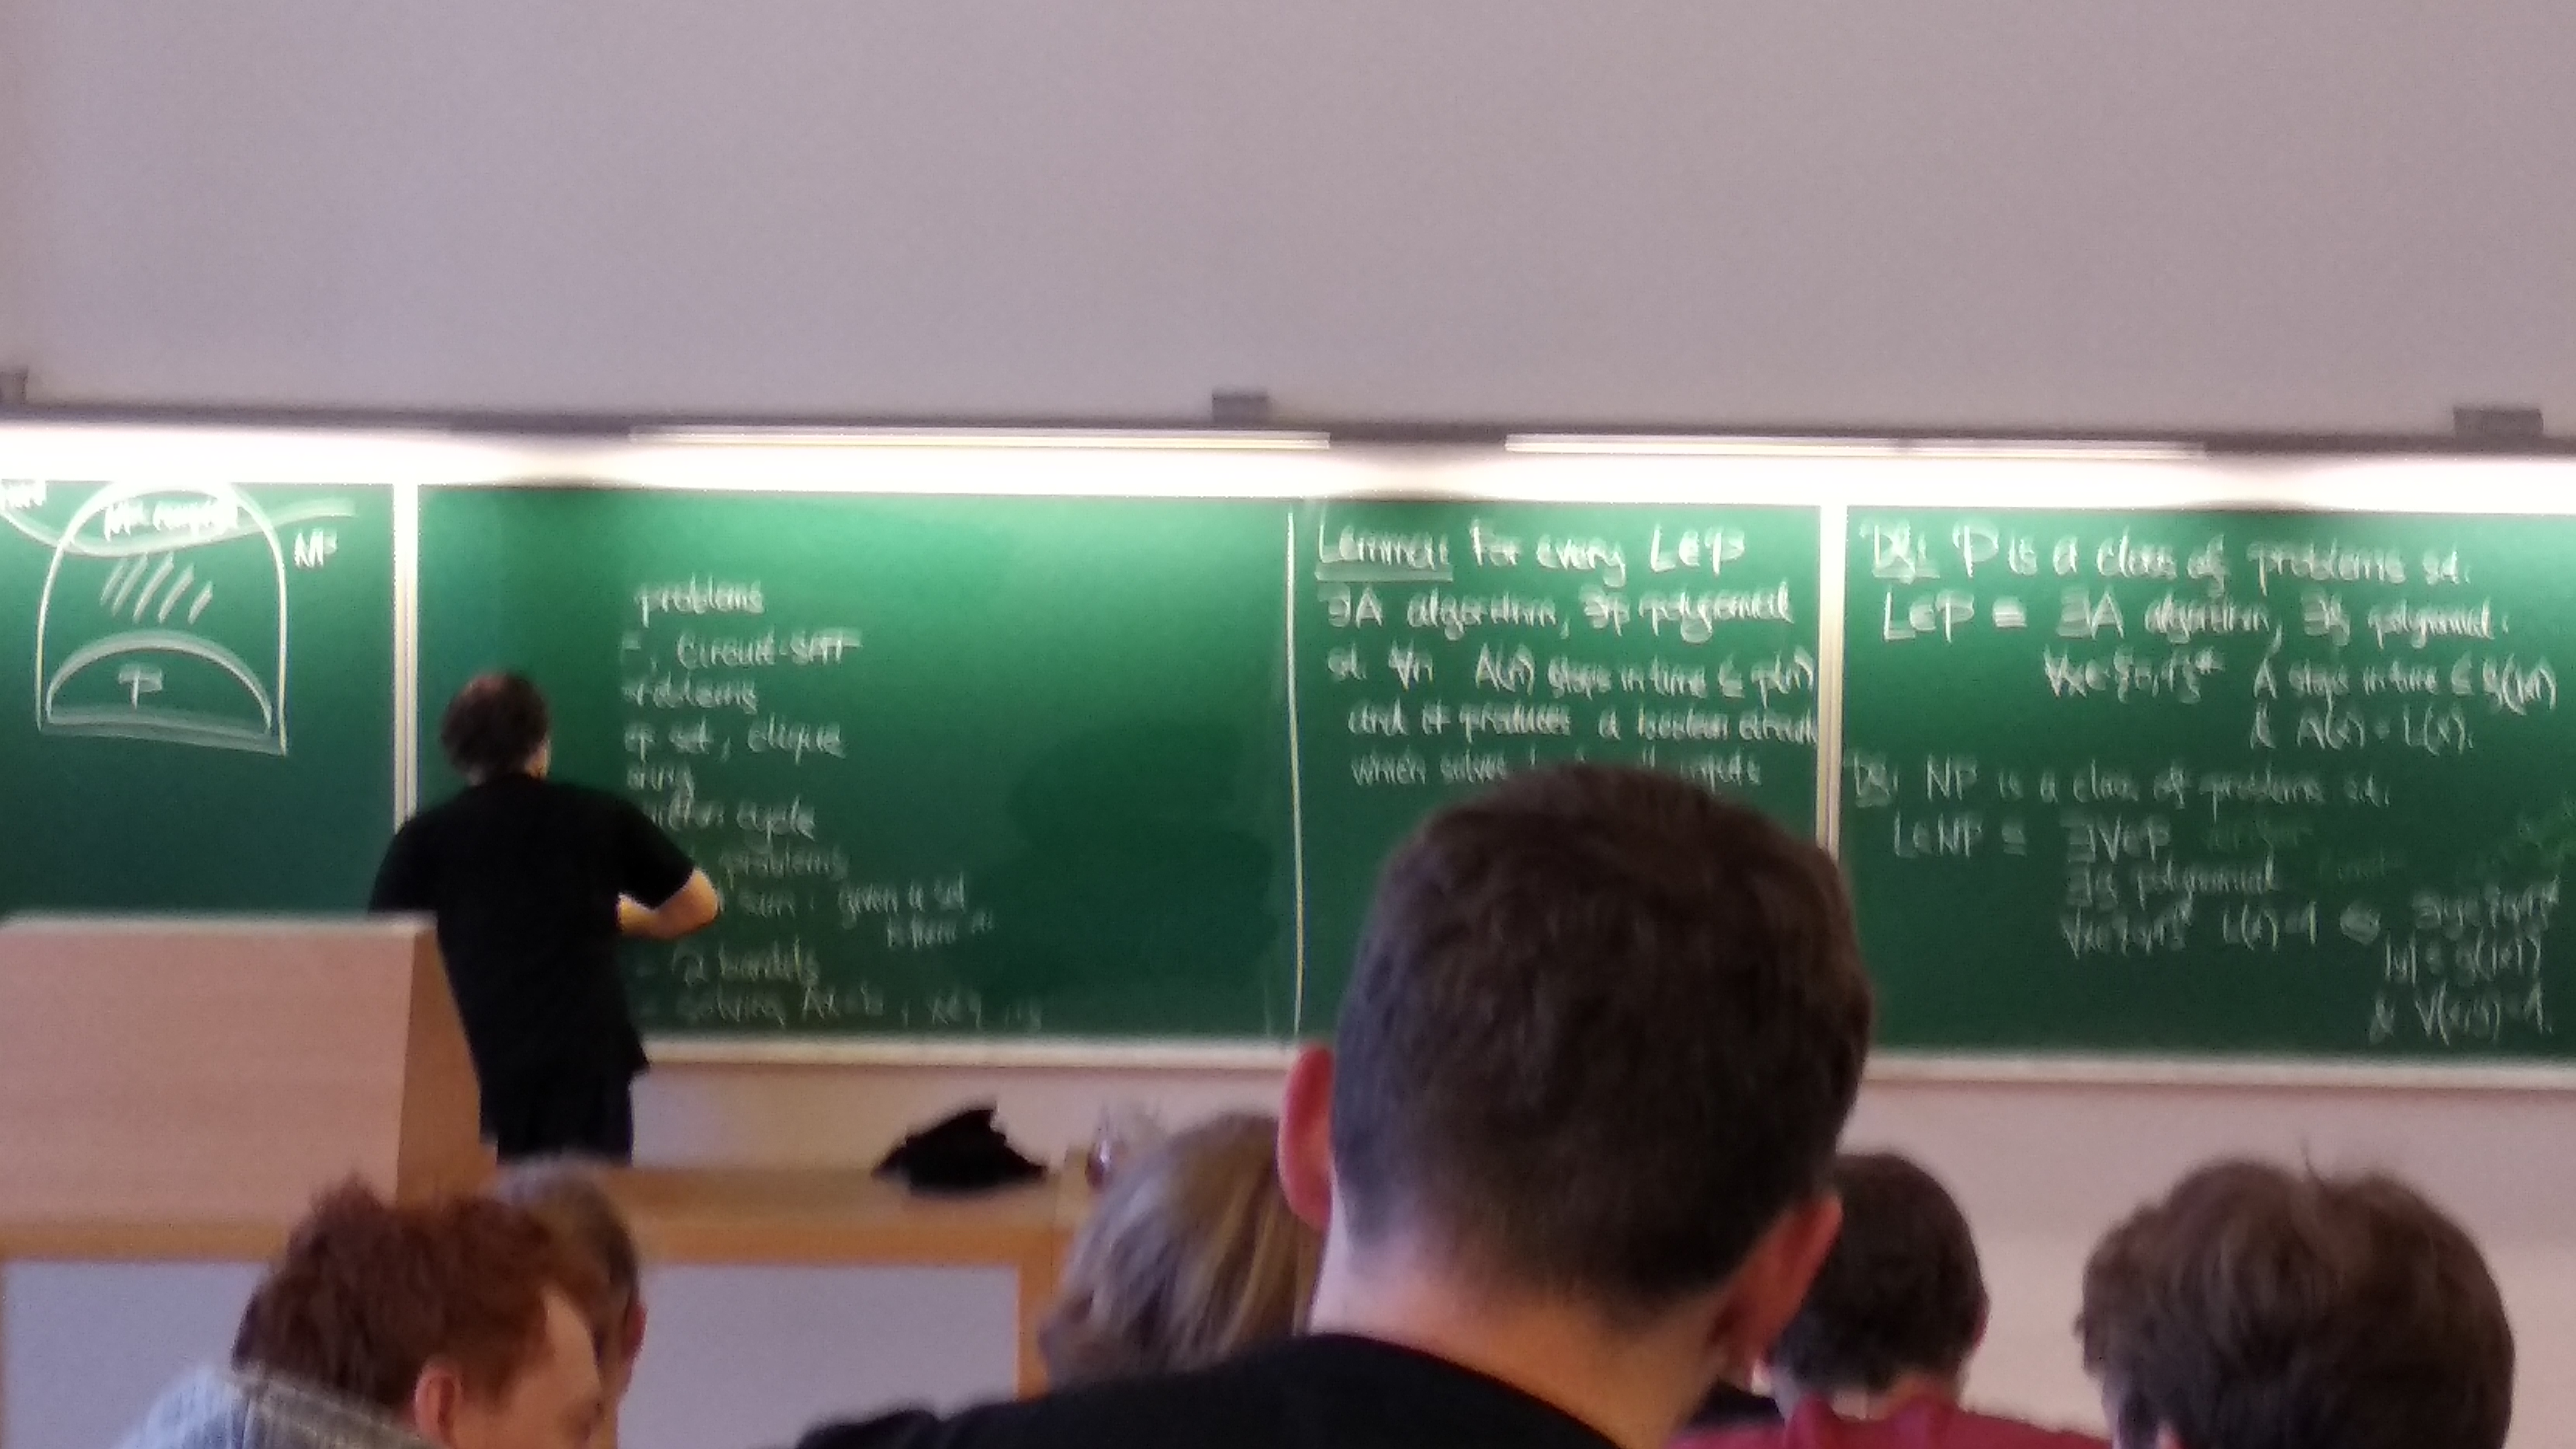 NP
P
problems
, Circuit-SAT
problems
set, clique
cycle
problems
sum: given a set
is there
- 2 bandits
- solving Ax=b, x∈
Lemma: For every L∈P
∃A algorithm, ∃p polynomial
st. ∀n A(n) stops in time ≤ p(n)
and it produces a boolean circuit
which solves inputs
Df: P is a class of problems s.t.
L∈P ≡ ∃A algorithm, ∃g polynomial:
∀x∈{0,1}* A stops in time ≤ g(|x|)
& A(x) = L(x).
Df: NP is a class of problems s.t.
L∈NP ≡ ∃V∈P
∃g polynomial
∀x∈{0,1}* L(x)=1 ⇔ ∃y∈{0,1}*
|y| ≤ g(|x|)
& V(x,y)=1.